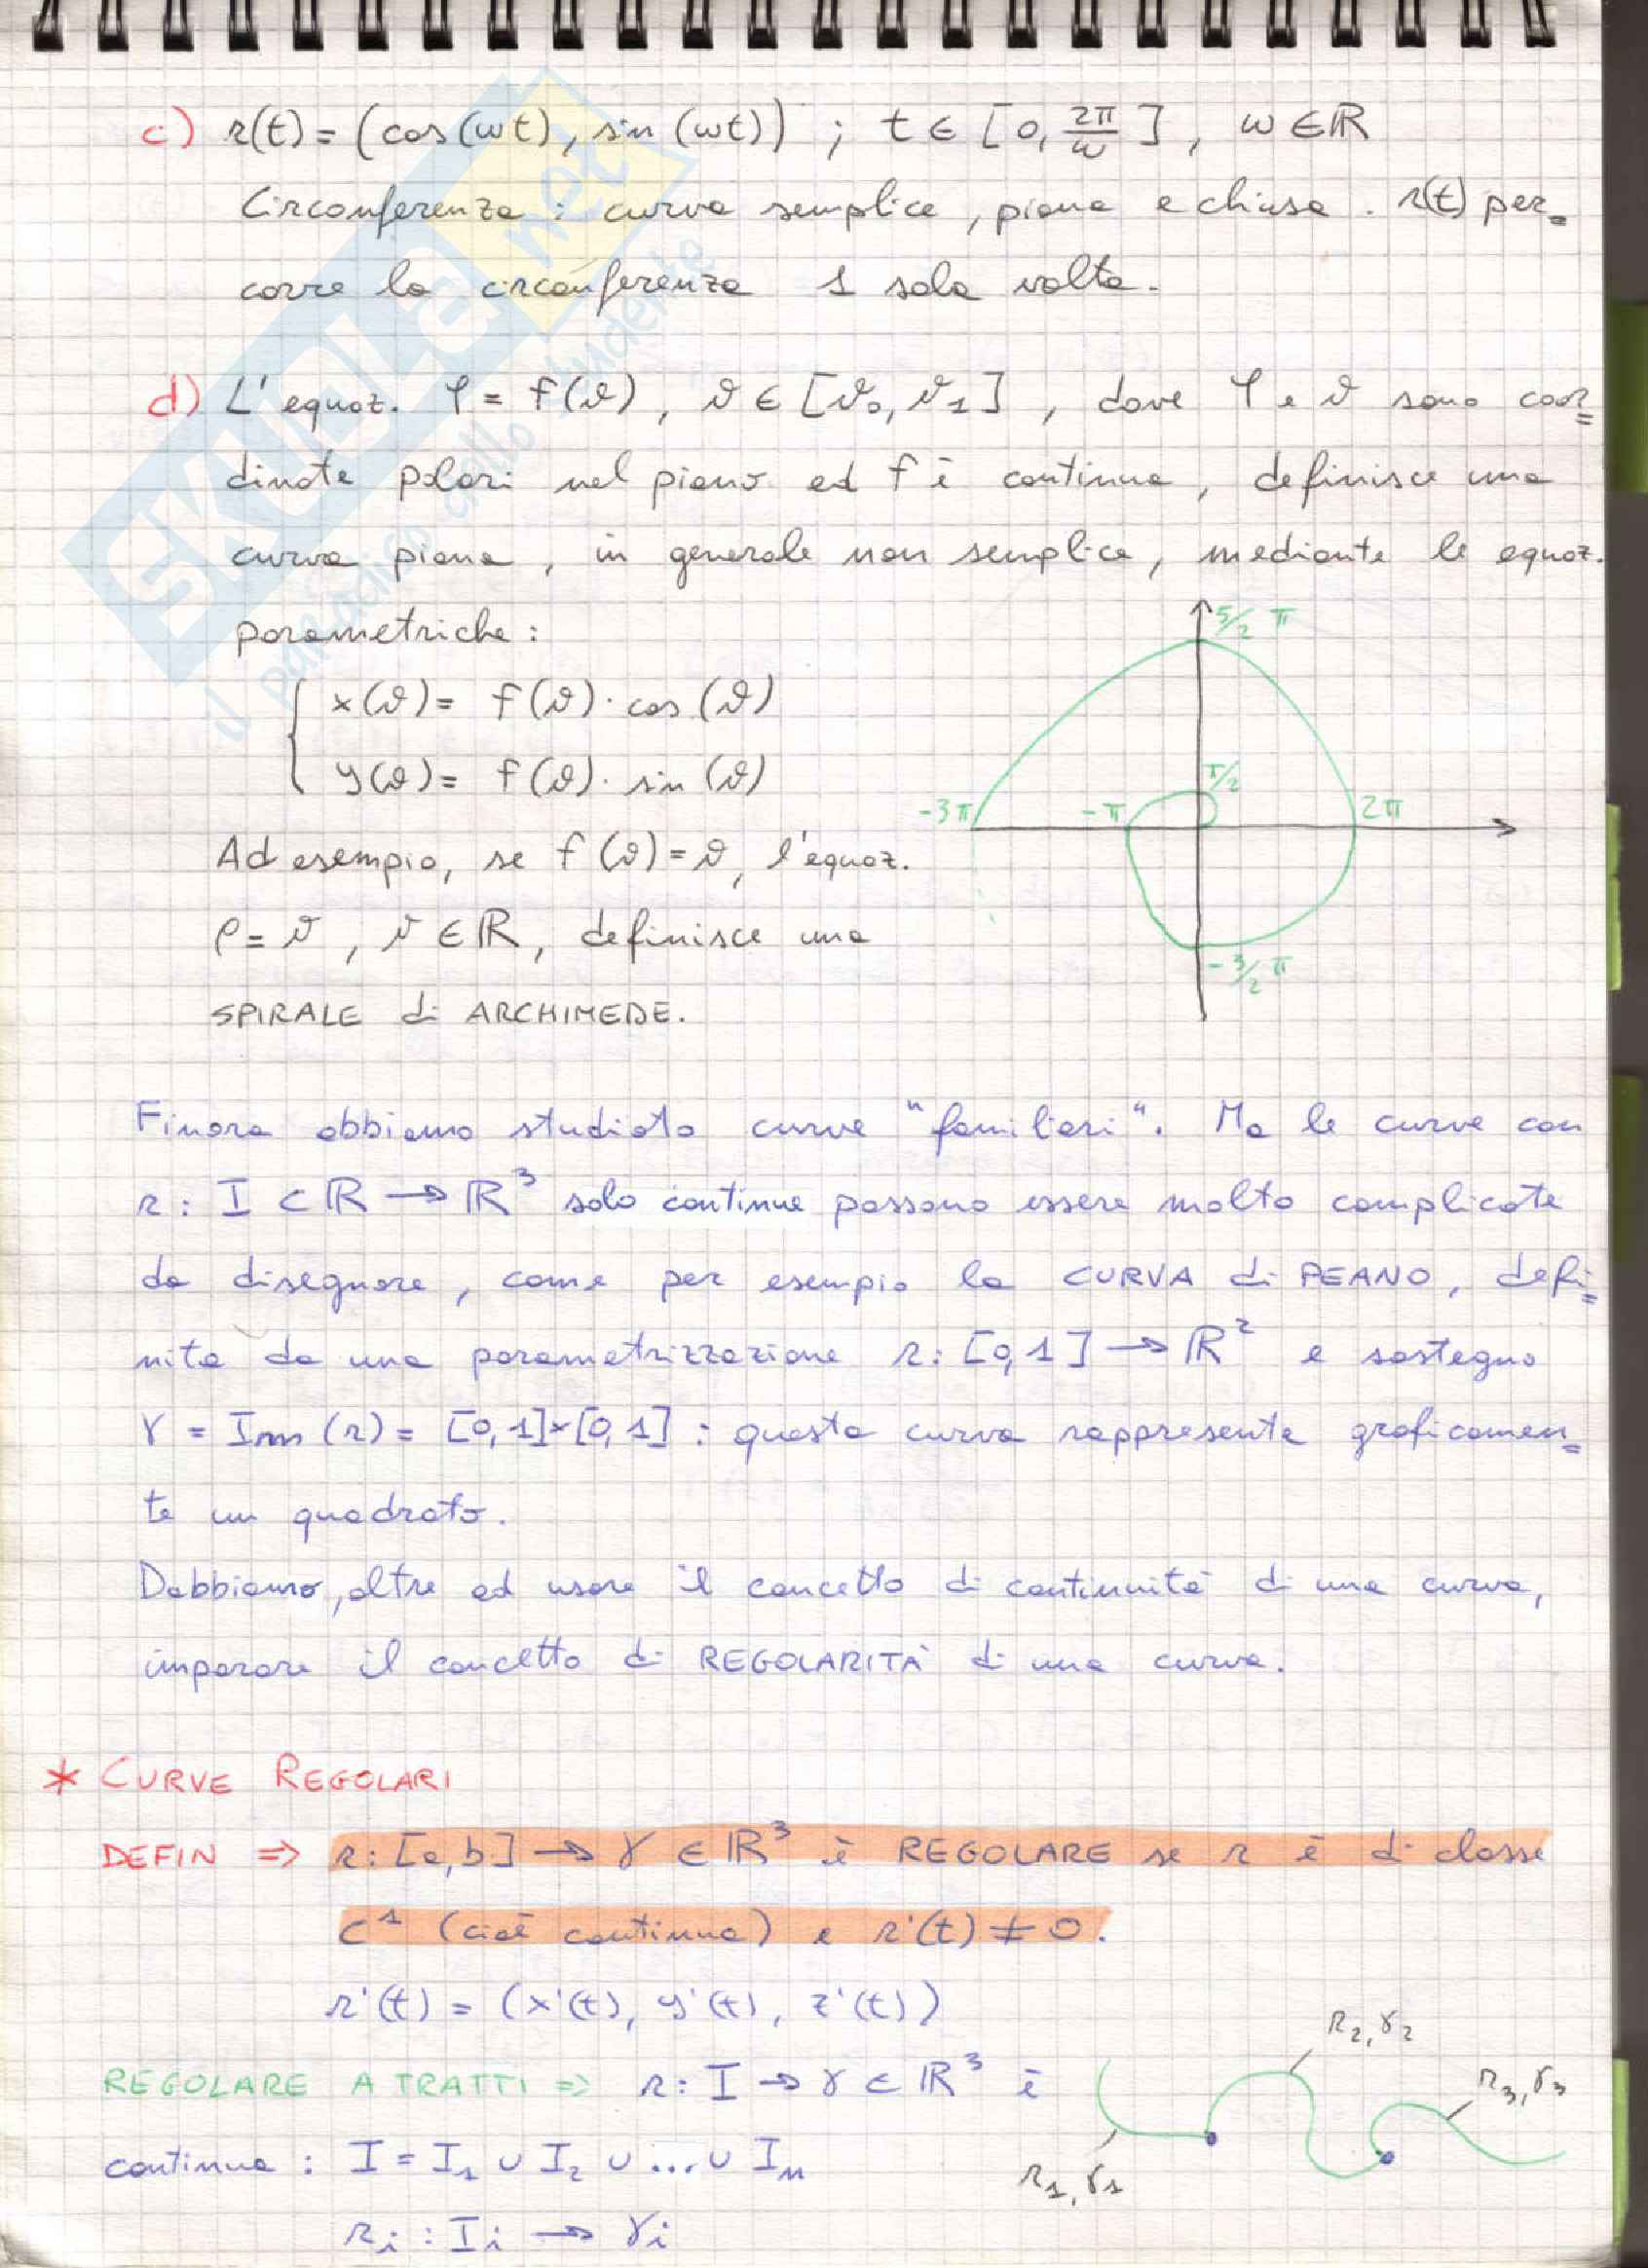 c) r(t) = (cos(ωt), sin(ωt)) ; t ∈ [0, 2π/ω], ω ∈ ℝ
Circonferenza: curva semplice, piana e chiusa. r(t) per=
corre la circonferenza 1 sola volta.
d) L'equaz. φ = f(ϑ), ϑ ∈ [ϑ₀, ϑ₁], dove φ e ϑ sono coor=
dinate polari nel piano ed f è continua, definisce una
curva piana, in generale non semplice, mediante le equaz.
parametriche:
{ x(ϑ) = f(ϑ)·cos(ϑ)
y(ϑ) = f(ϑ)·sin(ϑ)
5/2 π
π/2
-3π
-π
2π
-3/2 π
Ad esempio, se f(ϑ) = ϑ, l'equaz.
ρ = ϑ, ϑ ∈ ℝ, definisce una
SPIRALE di ARCHIMEDE.
Finora abbiamo studiato curve "familiari". Ma le curve con
r: I ⊂ ℝ → ℝ³ solo continue possono essere molto complicate
da disegnare, come per esempio la CURVA di PEANO, defi=
nita da una parametrizzazione r: [0,1] → ℝ² e sostegno
γ = Imm(r) = [0,1]×[0,1] : questa curva rappresenta graficamen=
te un quadrato.
Dobbiamo, oltre ad usare il concetto di continuità di una curva,
imparare il concetto di REGOLARITÀ di una curva.
* CURVE REGOLARI
DEFIN ⇒ r: [a,b] → γ ∈ ℝ³ è REGOLARE se r è di classe
C¹ (cioè continua) e r'(t) ≠ 0.
r'(t) = (x'(t), y'(t), z'(t))
REGOLARE A TRATTI ⇒ r: I → γ ∈ ℝ³ è
continua : I = I₁ ∪ I₂ ∪ ... ∪ Iₙ
rᵢ : Iᵢ → γᵢ
r₁, γ₁
r₂, γ₂
r₃, γ₃
SKUOLA.net
il paradiso dello studente